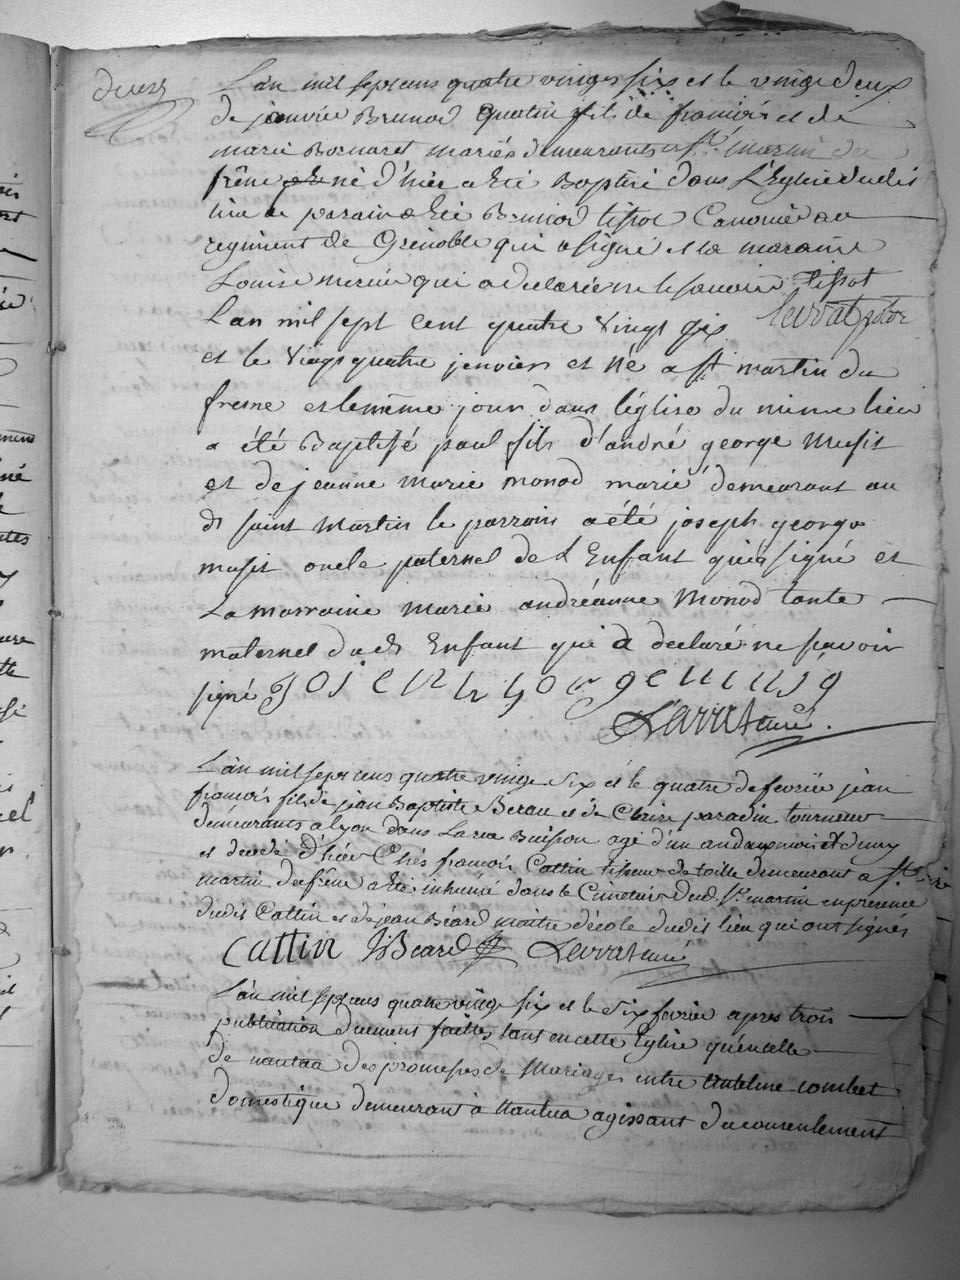 deux
L'an mil sept cens quatre vingt six et le vingt deux
de janvier Brunod quatin fils de francois et de
marie Bornaret mariés demeurants a St. martin du
frêne né d'hier a Eté Baptisé dans L'Eglise dudit
lieu le parain a Eté Brunod tissot Canonier au
regiment de Grenoble qui a signé et la maraine
Louise mercier qui a declarée ne le savoir tissot
Levrat
L'an mil sept cent quatre vingt six
et le vingt quatre janvier et né a st martin du
fresne et le même jour dans l'église du même lieu
a été Baptisé paul fils d'andré george musit
et de jeanne marie monod marié demeurant au
dt saint martin le parrain a été joseph george
musit oncle paternel de L'Enfant qui a signé et
La marraine marie andréanne monod tante
maternel du dt Enfant qui a declaré ne savoir
signé
Levrat curé.
L'an mil sept cens quatre vingt six et le quatre de fevrier jean
francois fils de jean Baptiste et de Claire paradin tourneur
demeurants a lyon dans La rue Buisson agé d'un an et demy
et decedé d'hier Chés francois Cattin tisseur de toille demeurant a st
martin du frêne a Eté inhumé dans le Cimetiere dud. St. martin en presence
dudit Cattin et de jean Béard maitre d'école dudit lieu qui ont signés
Cattin JBeard Levrat curé
L'an mil sept cens quatre vingt six et le six fevrier apres trois
publication duement faittes tant en cette Eglise qu'en celle
de nantua des promesses de Mariages entre Anteline combet
domestique demeurant à Nantua agissant du consentement